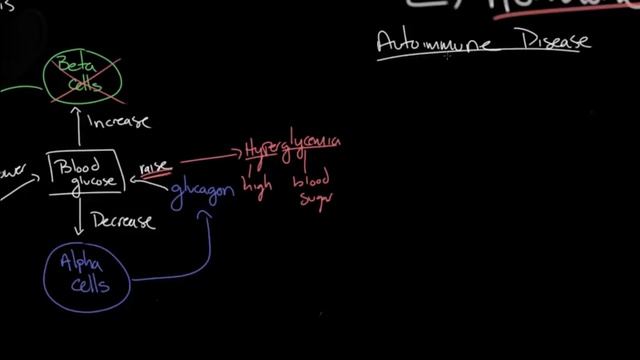 is
Autoimmune Disease
Beta
cells
Increase
Hyperglycemia
Blood
glucose
raise
high
blood
sugar
glucagon
Decrease
Alpha
cells